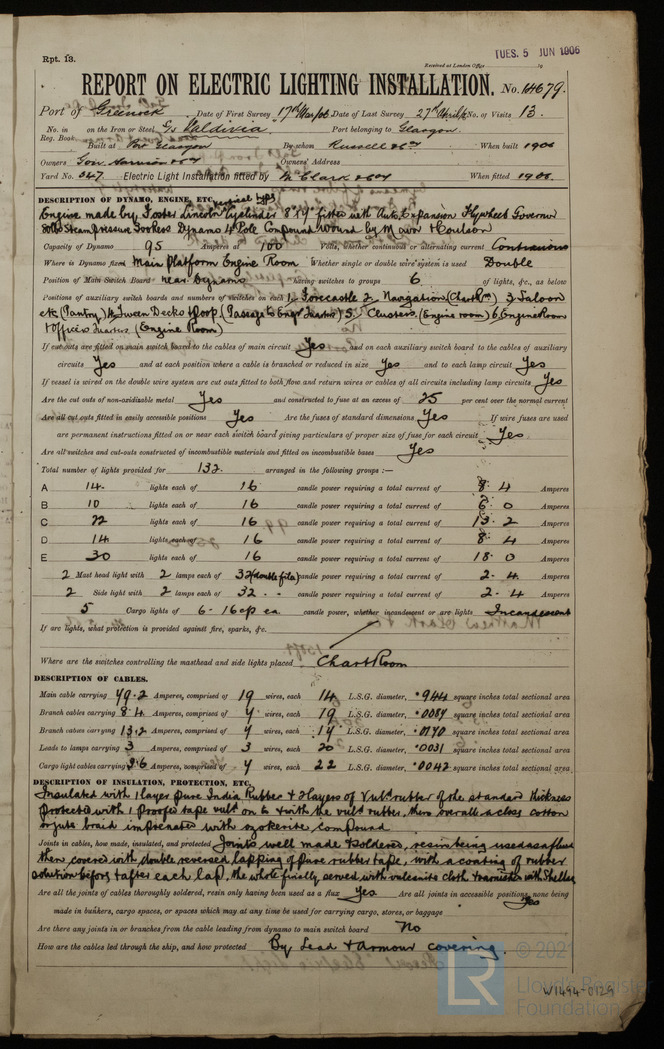 Rpt. 13.
Received at London Office
TUES. 5 JUN 1906
19
REPORT ON ELECTRIC LIGHTING INSTALLATION. No. 14679.
Port of Greenock Date of First Survey 17th Mar/06 Date of Last Survey 27th April/06 No. of Visits 13.
No. in Reg. Book on the Iron or Steel S/S Valdivia Port belonging to Glasgow.
Built at Port Glasgow By whom Russell & Co When built 1906
Owners Gow Harrison & Co Owners' Address
Yard No. 547. Electric Light Installation fitted by M. Clark & Co When fitted 1906.
DESCRIPTION OF DYNAMO, ENGINE, ETC. vertical type
Engine made by Foster Lincoln Cylinder 8 x 9 fitted with Auto. Expansion Flywheel Governor
80 lbs Steam pressure Dynamo 4 Pole Compound Wound by Mavor & Coulson
Capacity of Dynamo 95 Amperes at 100 Volts, whether continuous or alternating current Continuous
Where is Dynamo fixed Main Platform Engine Room Whether single or double wire system is used Double
Position of Main Switch Board near Dynamo having switches to groups 6 of lights, &c., as below
Positions of auxiliary switch boards and numbers of switches on each 1, Forecastle 2, Navigation (Chart Rm) 3, Saloon
etc (Pantry) 4, Tween Decks & Poop, (Passage to Engrs Quarters) 5, Clusters, (Engine room) 6, Engine Room
& Officers Quarters, (Engine Room)
If cut outs are fitted on main switch board to the cables of main circuit Yes and on each auxiliary switch board to the cables of auxiliary
circuits Yes and at each position where a cable is branched or reduced in size Yes and to each lamp circuit Yes
If vessel is wired on the double wire system are cut outs fitted to both flow and return wires or cables of all circuits including lamp circuits Yes
Are the cut outs of non-oxidizable metal Yes and constructed to fuse at an excess of 25 per cent over the normal current
Are all cut outs fitted in easily accessible positions Yes Are the fuses of standard dimensions Yes If wire fuses are used
are permanent instructions fitted on or near each switch board giving particulars of proper size of fuse for each circuit Yes
Are all switches and cut-outs constructed of incombustible materials and fitted on incombustible bases Yes
Total number of lights provided for 132 arranged in the following groups :—
A 14 lights each of 16 candle power requiring a total current of 8.4 Amperes
B 10 lights each of 16 candle power requiring a total current of 6.0 Amperes
C 22 lights each of 16 candle power requiring a total current of 13.2 Amperes
D 14 lights each of 16 candle power requiring a total current of 8.4 Amperes
E 30 lights each of 16 candle power requiring a total current of 18.0 Amperes
2 Mast head light with 2 lamps each of 32 (double fila) candle power requiring a total current of 2.4 Amperes
2 Side light with 2 lamps each of 32 candle power requiring a total current of 2.4 Amperes
5 Cargo lights of 6 - 16 cp ea candle power, whether incandescent or arc lights Incandescent
If arc lights, what protection is provided against fire, sparks, &c.
Where are the switches controlling the masthead and side lights placed Chart Room
DESCRIPTION OF CABLES.
Main cable carrying 79.2 Amperes, comprised of 19 wires, each 14 L.S.G. diameter, .944 square inches total sectional area
Branch cables carrying 8.4 Amperes, comprised of 7 wires, each 19 L.S.G. diameter, .0087 square inches total sectional area
Branch cables carrying 13.2 Amperes, comprised of 7 wires, each L.S.G. diameter, .0170 square inches total sectional area
Leads to lamps carrying 3 Amperes, comprised of 3 wires, each 20 L.S.G. diameter, .0031 square inches total sectional area
Cargo light cables carrying 3.6 Amperes, comprised of 7 wires, each 22 L.S.G. diameter, .0042 square inches total sectional area
DESCRIPTION OF INSULATION, PROTECTION, ETC.
Insulated with 1 layer pure India Rubber & 2 layers of Vulc. rubber of the standard thickness
protected with 1 proofed tape vulc. on to & with the vulc. rubber, then overall a close cotton
or jute braid impregnated with ozokerite compound
Joints in cables, how made, insulated, and protected Joints well made & soldered, resin being used as a flux
then covered with double reversed lapping of pure rubber tape, with a coating of rubber
solution before & after each lap, the whole finally served with cloth & varnished with Shellac
Are all the joints of cables thoroughly soldered, resin only having been used as a flux Yes Are all joints in accessible positions, none being
made in bunkers, cargo spaces, or spaces which may at any time be used for carrying cargo, stores, or baggage Yes
Are there any joints in or branches from the cable leading from dynamo to main switch board No
How are the cables led through the ship, and how protected By Lead & Armour covering.
© 202
LR
Lloyd's Register
Foundation
W1494-0129